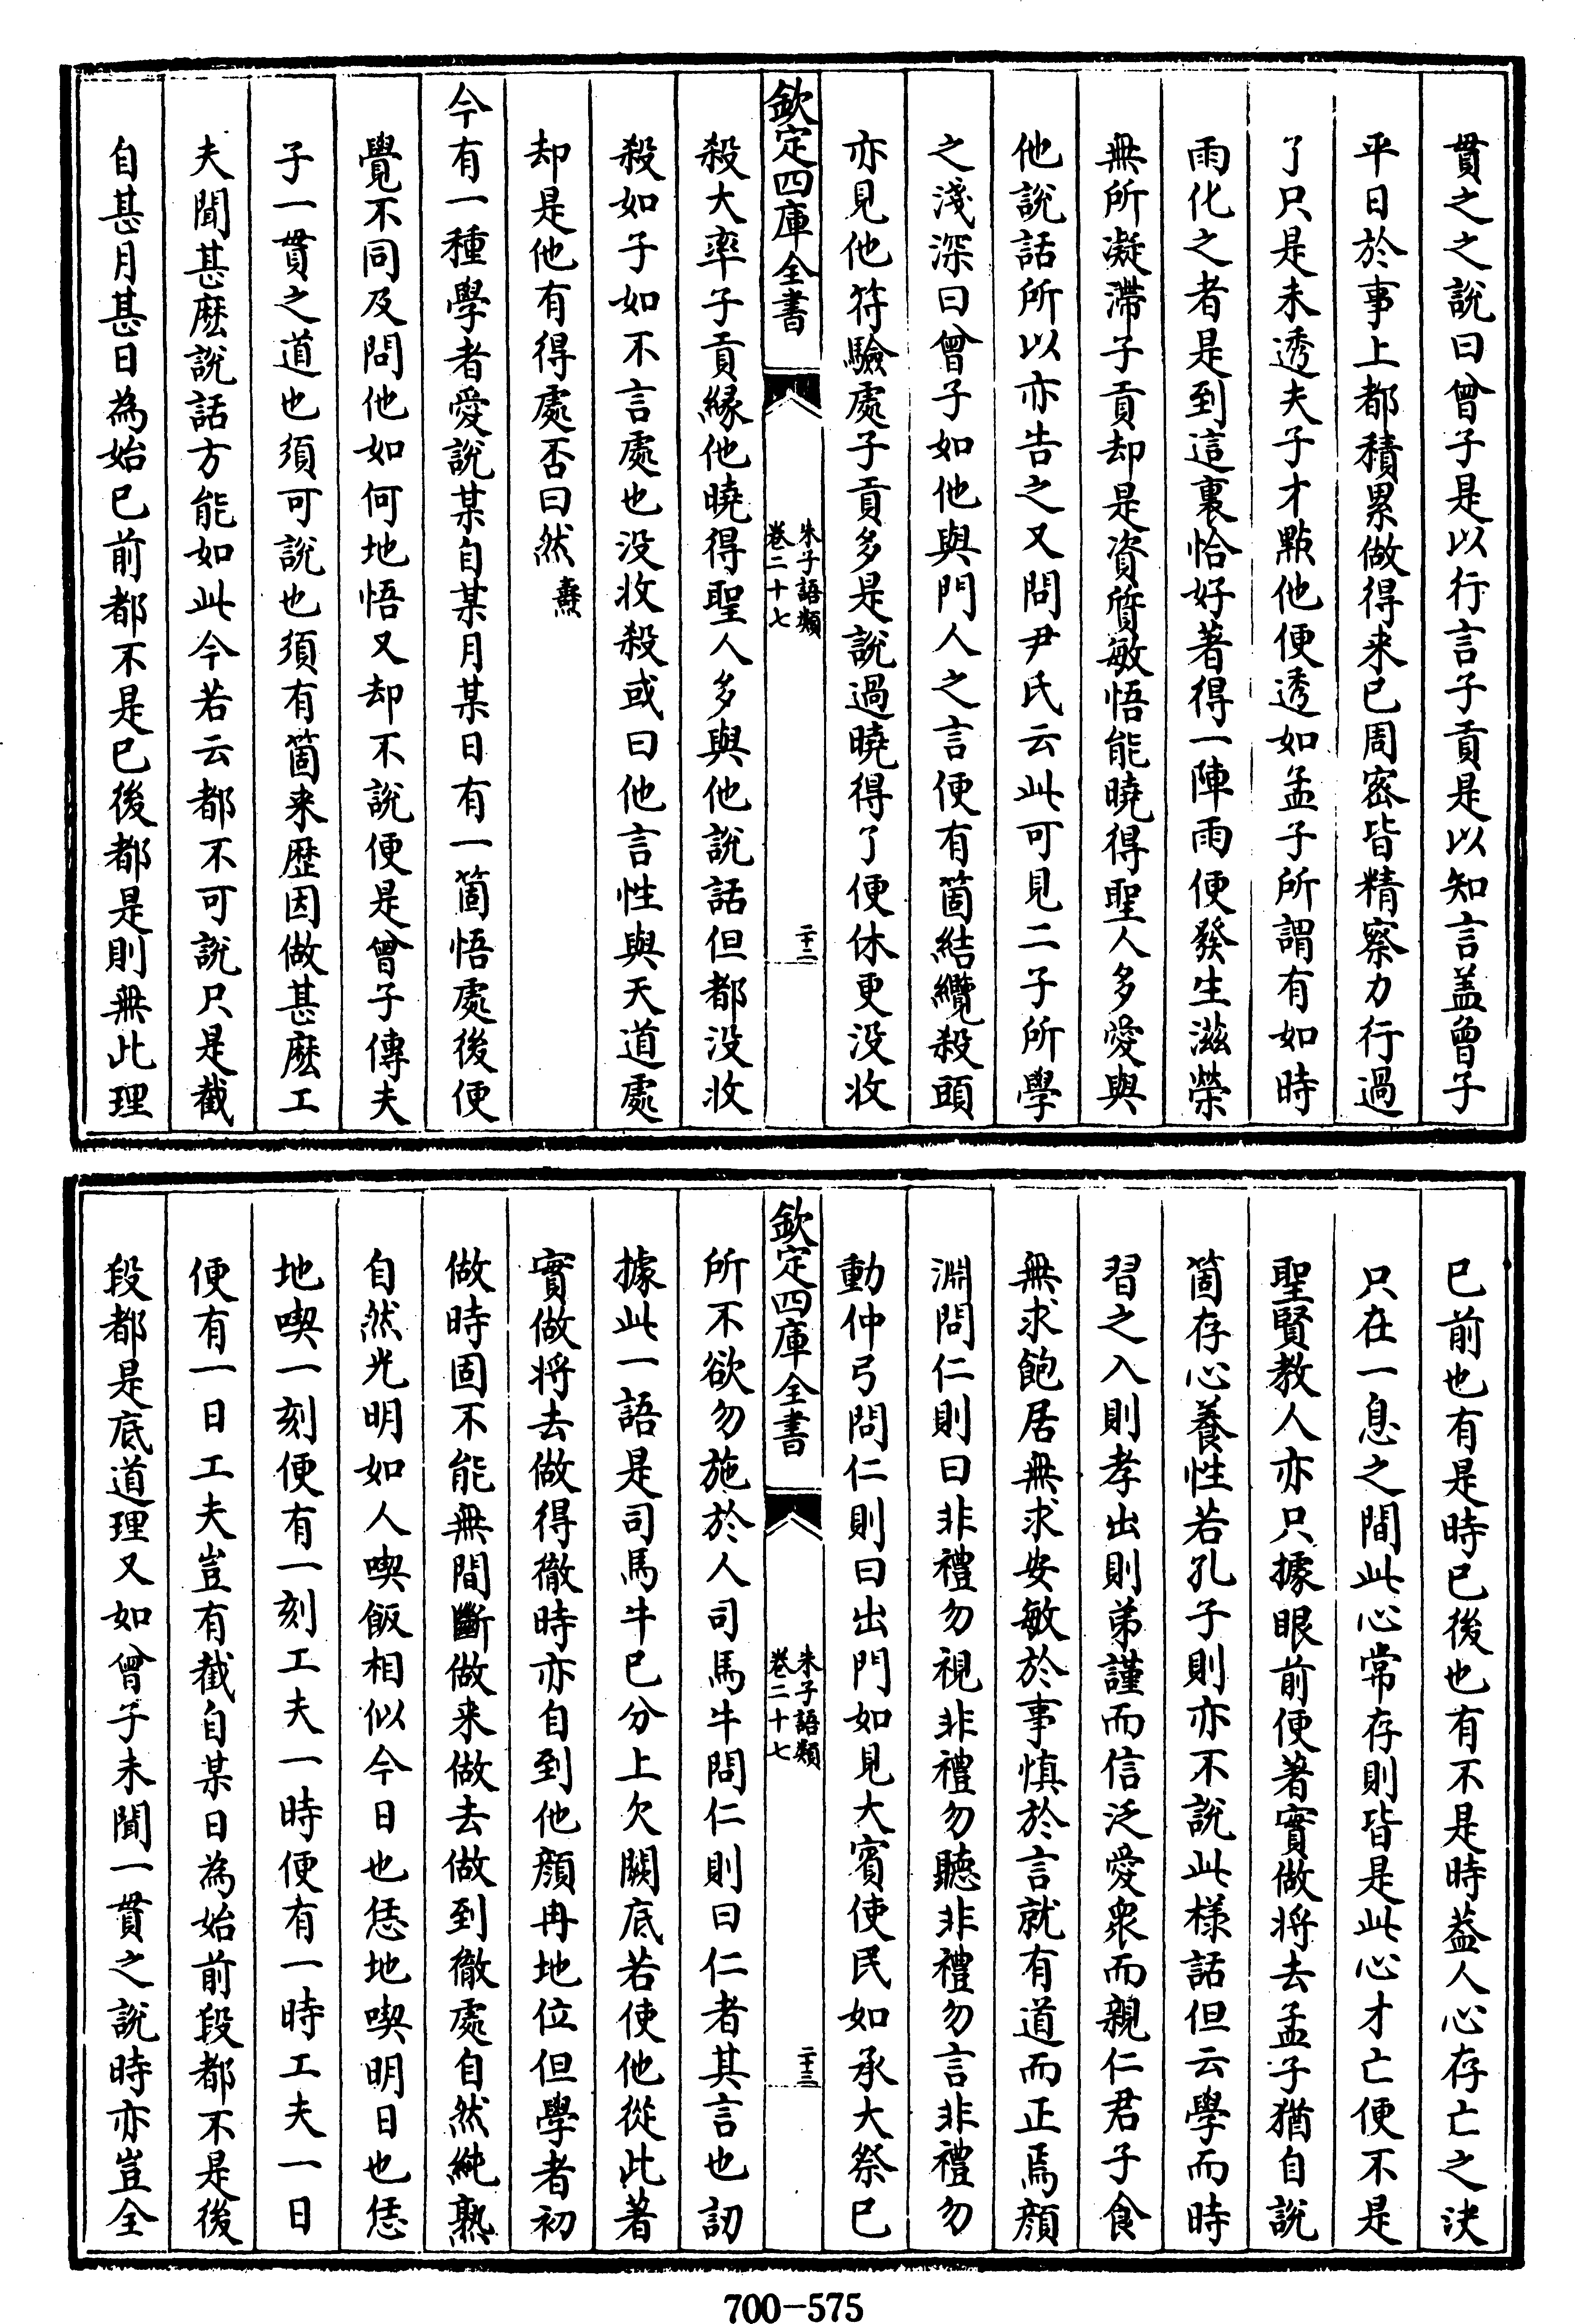 貫之之說曰曾子是以行言子貢是以知言盖曾子
平日於事上都積累做得来已周密皆精察力行過
了只是未透夫子才點他便透如孟子所謂有如時
雨化之者是到這裏恰好著得一陣雨便發生滋榮
無所凝滯子貢却是資質敏悟能曉得聖人多愛與
他說話所以亦告之又問尹氏云此可見二子所學
之淺深曰曾子如他與門人之言便有箇結纜殺頭
亦見他符驗處子貢多是說過曉得了便休更没收
欽定四庫全書
朱子語類
卷二十七
二十二
殺大率子貢縁他曉得聖人多與他說話但都没收
殺如子如不言處也没收殺或曰他言性與天道處
却是他有得處否曰然 燾
今有一種學者愛說某自某月某日有一箇悟處後便
覺不同及問他如何地悟又却不說便是曾子傳夫
子一貫之道也須可說也須有箇来歴因做甚麽工
夫聞甚麽說話方能如此今若云都不可說只是截
自甚月甚日為始已前都不是已後都是則無此理
已前也有是時已後也有不是時葢人心存亡之決
只在一息之間此心常存則皆是此心才亡便不是
聖賢教人亦只據眼前便著實做将去孟子猶自說
箇存心養性若孔子則亦不說此様話但云學而時
習之入則孝出則弟謹而信泛愛衆而親仁君子食
無求飽居無求安敏於事慎於言就有道而正焉顔
淵問仁則曰非禮勿視非禮勿聽非禮勿言非禮勿
動仲弓問仁則曰出門如見大賓使民如承大祭已
欽定四庫全書
朱子語類
卷二十七
二十三
所不欲勿施於人司馬牛問仁則曰仁者其言也訒
據此一語是司馬牛已分上欠闕底若使他從此著
實做将去做得徹時亦自到他顔冉地位但學者初
做時固不能無間斷做来做去做到徹處自然純熟
自然光明如人喫飯相似今日也恁地喫明日也恁
地喫一刻便有一刻工夫一時便有一時工夫一日
便有一日工夫豈有截自某日為始前段都不是後
段都是底道理又如曾子未聞一貫之說時亦豈全
700-575